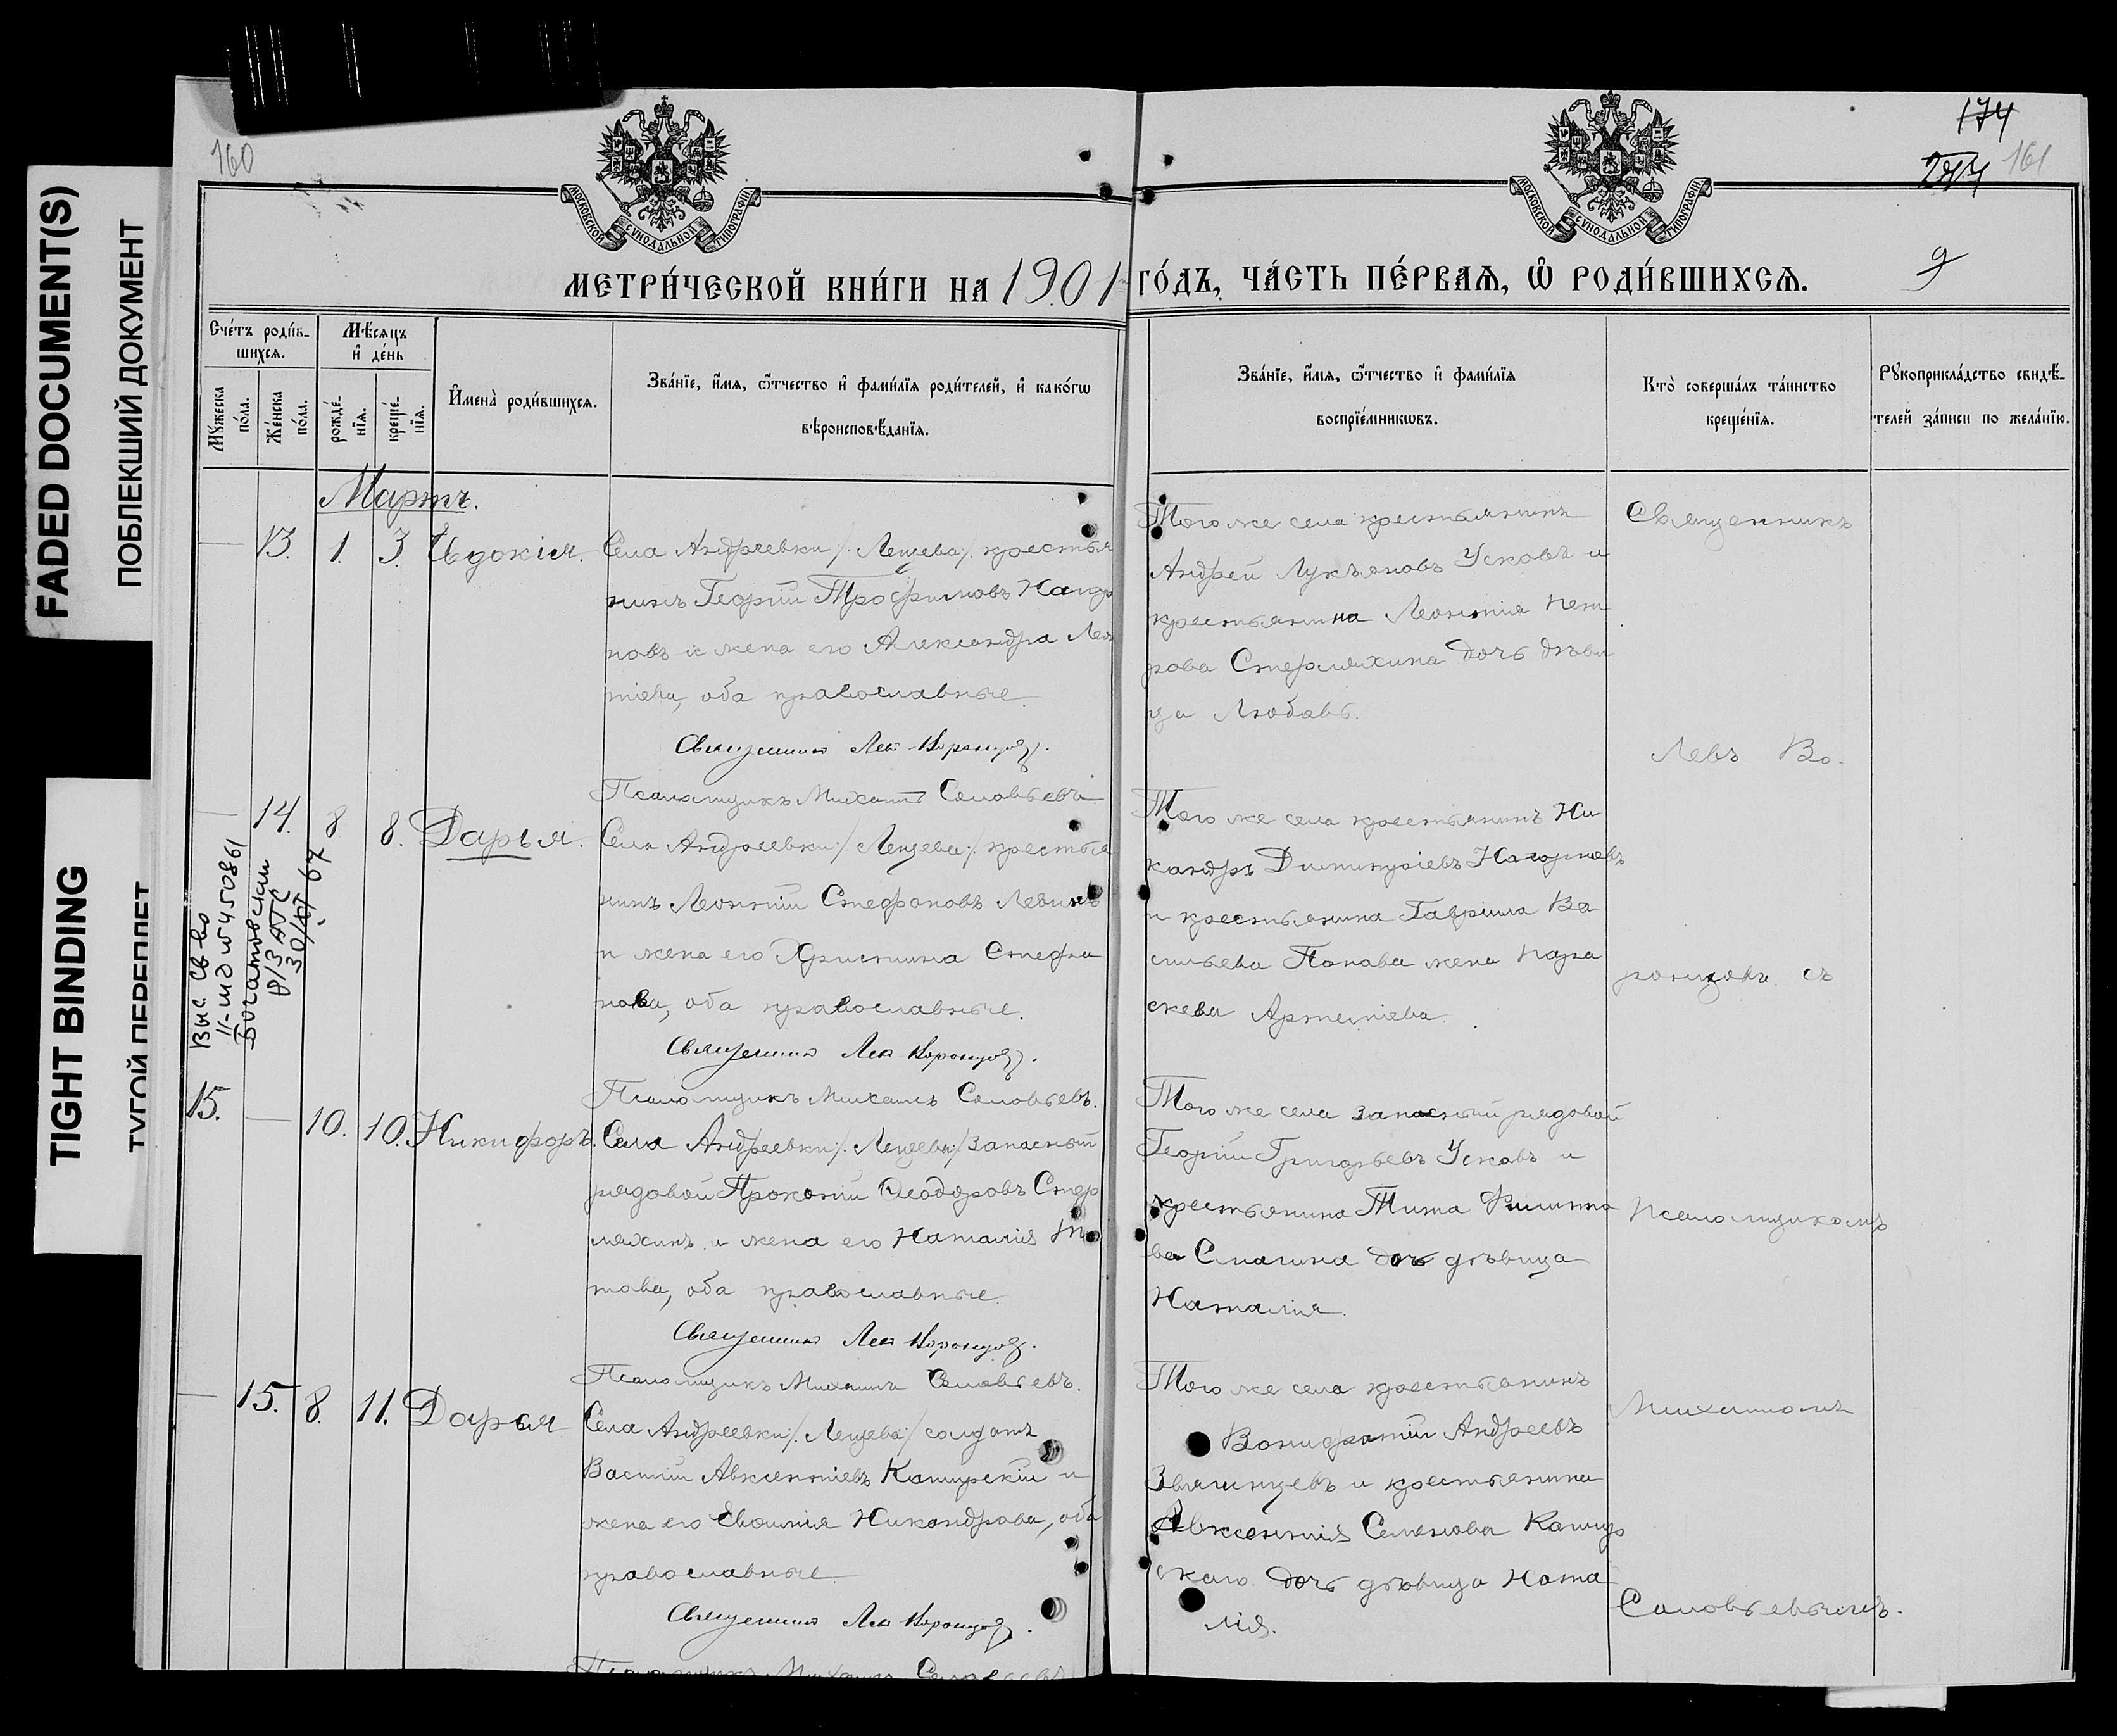 FADED DOCUMENT(S)
ПОБЛЕКШИЙ ДОКУМЕНТ
TIGHT BINDING
ТУГОЙ ПЕРЕПЛЕТ
160
174
161
9
МОСКОВСКОЙ СУНОДАЛЬНОЙ ТИПОГРАФІИ
МОСКОВСКОЙ СУНОДАЛЬНОЙ ТИПОГРАФІИ
МЕТРИ́ЧЕСКОЙ КНИ́ГИ НА 1901 ГО́ДЪ, ЧА́СТЬ ПЕ́РВАѦ, Ѡ҆ РОДИ́ВШИХСѦ.
Сче́тъ роди́в-
шихсѧ.
Мꙋжеска по́ла.
Же́нска по́ла.
Мѣ́сѧцъ
и҆ де́нь
рожде́-
нїѧ.
креще́-
нїѧ.
И҆мена̀ роди́вшихсѧ.
Зва́нїе, и҆́мѧ, ѻ҆́тчество и҆ фами́лїѧ роди́телей, и҆ како́гѡ
вѣроисповѣ́данїѧ.
Зва́нїе, и҆́мѧ, ѻ҆́тчество и҆ фами́лїѧ
воспрїе́мникѡвъ.
Кто̀ соверша́лъ та́инство
креще́нїѧ.
Рꙋкоприкла́дство свидѣ́-
телей за́писи по жела́нїю.
Мартъ.
— 13. 1. 3. Евдокія.
Села Андреевки /. Лещева /. крестья
нинъ Георгій Трофимовъ Нагор
новъ и жена его Александра Леон
тіева, оба православные.
Священникъ Лев Воронцов.
Псаломщикъ Михаилъ Соловьевъ
Того же села крестьянинъ
Андрей Лукъяновъ Усковъ и
крестьянина Леонтія Пет
рова Стерляхина дочь дѣви
ца Любовь.
Священникъ
Левъ Во.
— 14. 8. 8. Дарья.
Села Андреевки /. Лещева /. крестья
нинъ Леонтій Стефановъ Левинъ
и жена его Христина Стефа
нова, оба православные.
Священникъ Лев Воронцов.
Псаломщикъ Михаилъ Соловьевъ.
Того же села крестьянинъ Ни
кандръ Димитріевъ Нагорновъ
и крестьянина Гавріила Ва
сильева Попова жена Пара
скева Артеміева.
ронцовъ съ
Выс. св-во
II-
450861
30/XI 67
15. — 10. 10. Никифоръ.
Села Андреевки /. Лещева / запасный
рядовой Прокопій Ѳеодоровъ Стер
ляхинъ и жена его Наталія Ти
това, оба православные.
Священникъ Лев Воронцов.
Псаломщикъ Михаилъ Соловьевъ.
Того же села запасный рядовой
Георгій Григорьевъ Усковъ и
крестьянина Тита Филиппо
ва Спагина дочь дѣвица
Наталія.
псаломщикомъ
— 15. 8. 11. Дарья
Села Андреевки /. Лещева / солдатъ
Василій Авксентіевъ Каширскій и
жена его Евѳимія Никандрова, оба
православные.
Священникъ Лев Воронцов.
Псаломщикъ Михаилъ Соловьевъ
Того же села крестьянинъ
Вонифатій Андреевъ
Звягинцевъ и крестьянина
Авксентія Семенова Кашир
скаго дочь дѣвица Ната
лія.
Михаиломъ
Соловьевымъ.